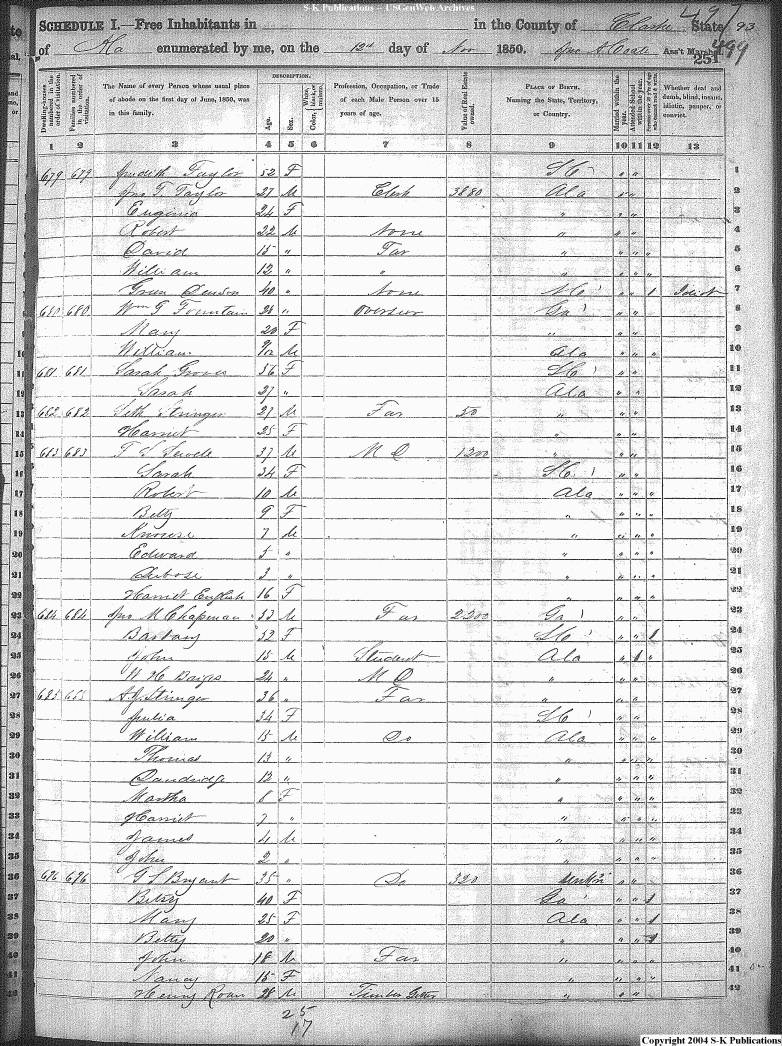 S-K Publications – USGenWeb Archives
497
SCHEDULE I.—Free Inhabitants in in the County of Clarke State 93
of Ala enumerated by me, on the 12th day of Nov 1850. Jno A Coate Ass't Marshal. 499
251
Dwelling-houses numbered in the order of visitation.
Families numbered in the order of visitation.
The Name of every Person whose usual place of abode on the first day of June, 1850, was in this family.
DESCRIPTION.
Age.
Sex.
Color, White, black, or mulatto.
Profession, Occupation, or Trade of each Male Person over 15 years of age.
Value of Real Estate owned.
PLACE OF BIRTH. Naming the State, Territory, or Country.
Married within the year.
Attended School within the year.
Persons over 20 y'rs of age who cannot read & write.
Whether deaf and dumb, blind, insane, idiotic, pauper, or convict.
1 2 3 4 5 6 7 8 9 10 11 12 13
679 679 Judith Taylor 52 F SC " " 1
2 Jno T. Taylor 27 M Clerk 3880 Ala " " 2
3 Eugenia 24 F " " " 3
4 Robert 22 M None " " " 4
5 David 15 " Far " " " " 5
6 William 12 " " " " " " 6
7 Green Denson 40 " None NC " " 1 Idiot 7
680 680 Wm G Fountain 28 " Overseer Ga " " 8
9 Mary 20 F " " " 9
10 William 9/12 M Ala " " " 10
11 681 681 Sarah Grover 56 F SC " " 11
12 Sarah 27 " Ala " " 12
13 682 682 Seth Stringer 27 M Far 50 " " " 13
14 Harriet 25 F " " " 14
15 683 683 37 M M D 1200 " " " 15
16 Sarah 34 F SC " " 16
17 Robert 10 M Ala " " " 17
18 Betty 9 F " " " " 18
19 7 M " " " " 19
20 Edward 5 " " " " " 20
21 3 " " " " " 21
22 Harriet English 16 F " " " " 22
23 684 684 Jno M Chapman 33 M Far 2200 Ga " " 23
24 Barbary 32 F SC " " 1 24
25 John 15 M Student Ala " 1 " 25
26 W H 24 " M D " " " 26
27 685 A J Stringer 36 " Far " " " 27
28 Julia 34 F SC " " 28
29 William 15 M Do Ala " " " 29
30 Thomas 13 " " " " " 30
31 Dandridge 12 " " " " " 31
32 Martha 8 F " " " " 32
33 Harriet 7 " " " " " 33
34 James 4 M " " " " 34
35 John 2 " " " " " 35
36 696 696 G S Bryant 35 " Do 320 unkn " " 36
37 Betsy 40 F Ga " " 1 37
38 Mary 25 F Ala " " 1 38
39 Betty 20 " " " " 1 39
40 John 18 M Far " " " 40
41 Nancy 15 F " " " " 41
42 Henry Roan 28 M Timber Getter " " " 42
25
17
Copyright 2004 S-K Publications